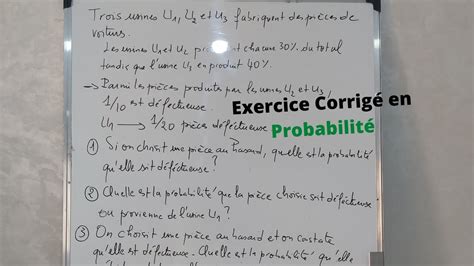 Trois usines U1, U2 et U3 fabriquent des pièces de
voitures.
Les usines U1 et U2 produisent chacune 30% du total
tandis que l'usine U3 en produit 40%.
→ Parmi les pièces produites par les usines U2 et U3,
1/10 est défectueuse.
U1 → 1/20 pièces défectueuse
Exercice Corrigé en
Probabilité
① Si on choisit une pièce au hasard, quelle est la probabilité
qu'elle soit défectueuse?
② Quelle est la probabilité que la pièce choisie soit défectueuse
ou provienne de l'usine U1?
③ On choisit une pièce au hasard et on constate
qu'elle est défectueuse. Quelle est la probabilité qu'elle